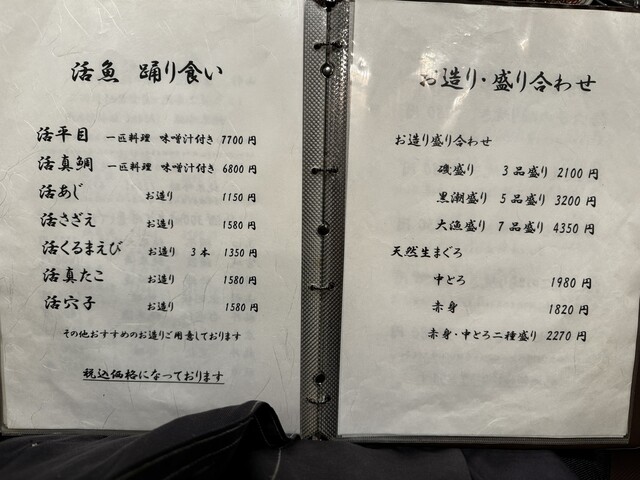 活魚 踊り食い
活平目 一匹料理 味噌汁付き 7700 円
活真鯛 一匹料理 味噌汁付き 6800 円
活あじ お造り 1150 円
活さざえ お造り 1580 円
活くるまえび お造り 3 本 1350 円
活真たこ お造り 1580 円
活穴子 お造り 1580 円
その他おすすめのお造りご用意しております
税込価格になっております
お造り・盛り合わせ
お造り盛り合わせ
磯盛り 3 品盛り 2100 円
黒潮盛り 5 品盛り 3200 円
大漁盛り 7 品盛り 4350 円
天然生まぐろ
中とろ 1980 円
赤身 1820 円
赤身・中とろ二種盛り 2270 円